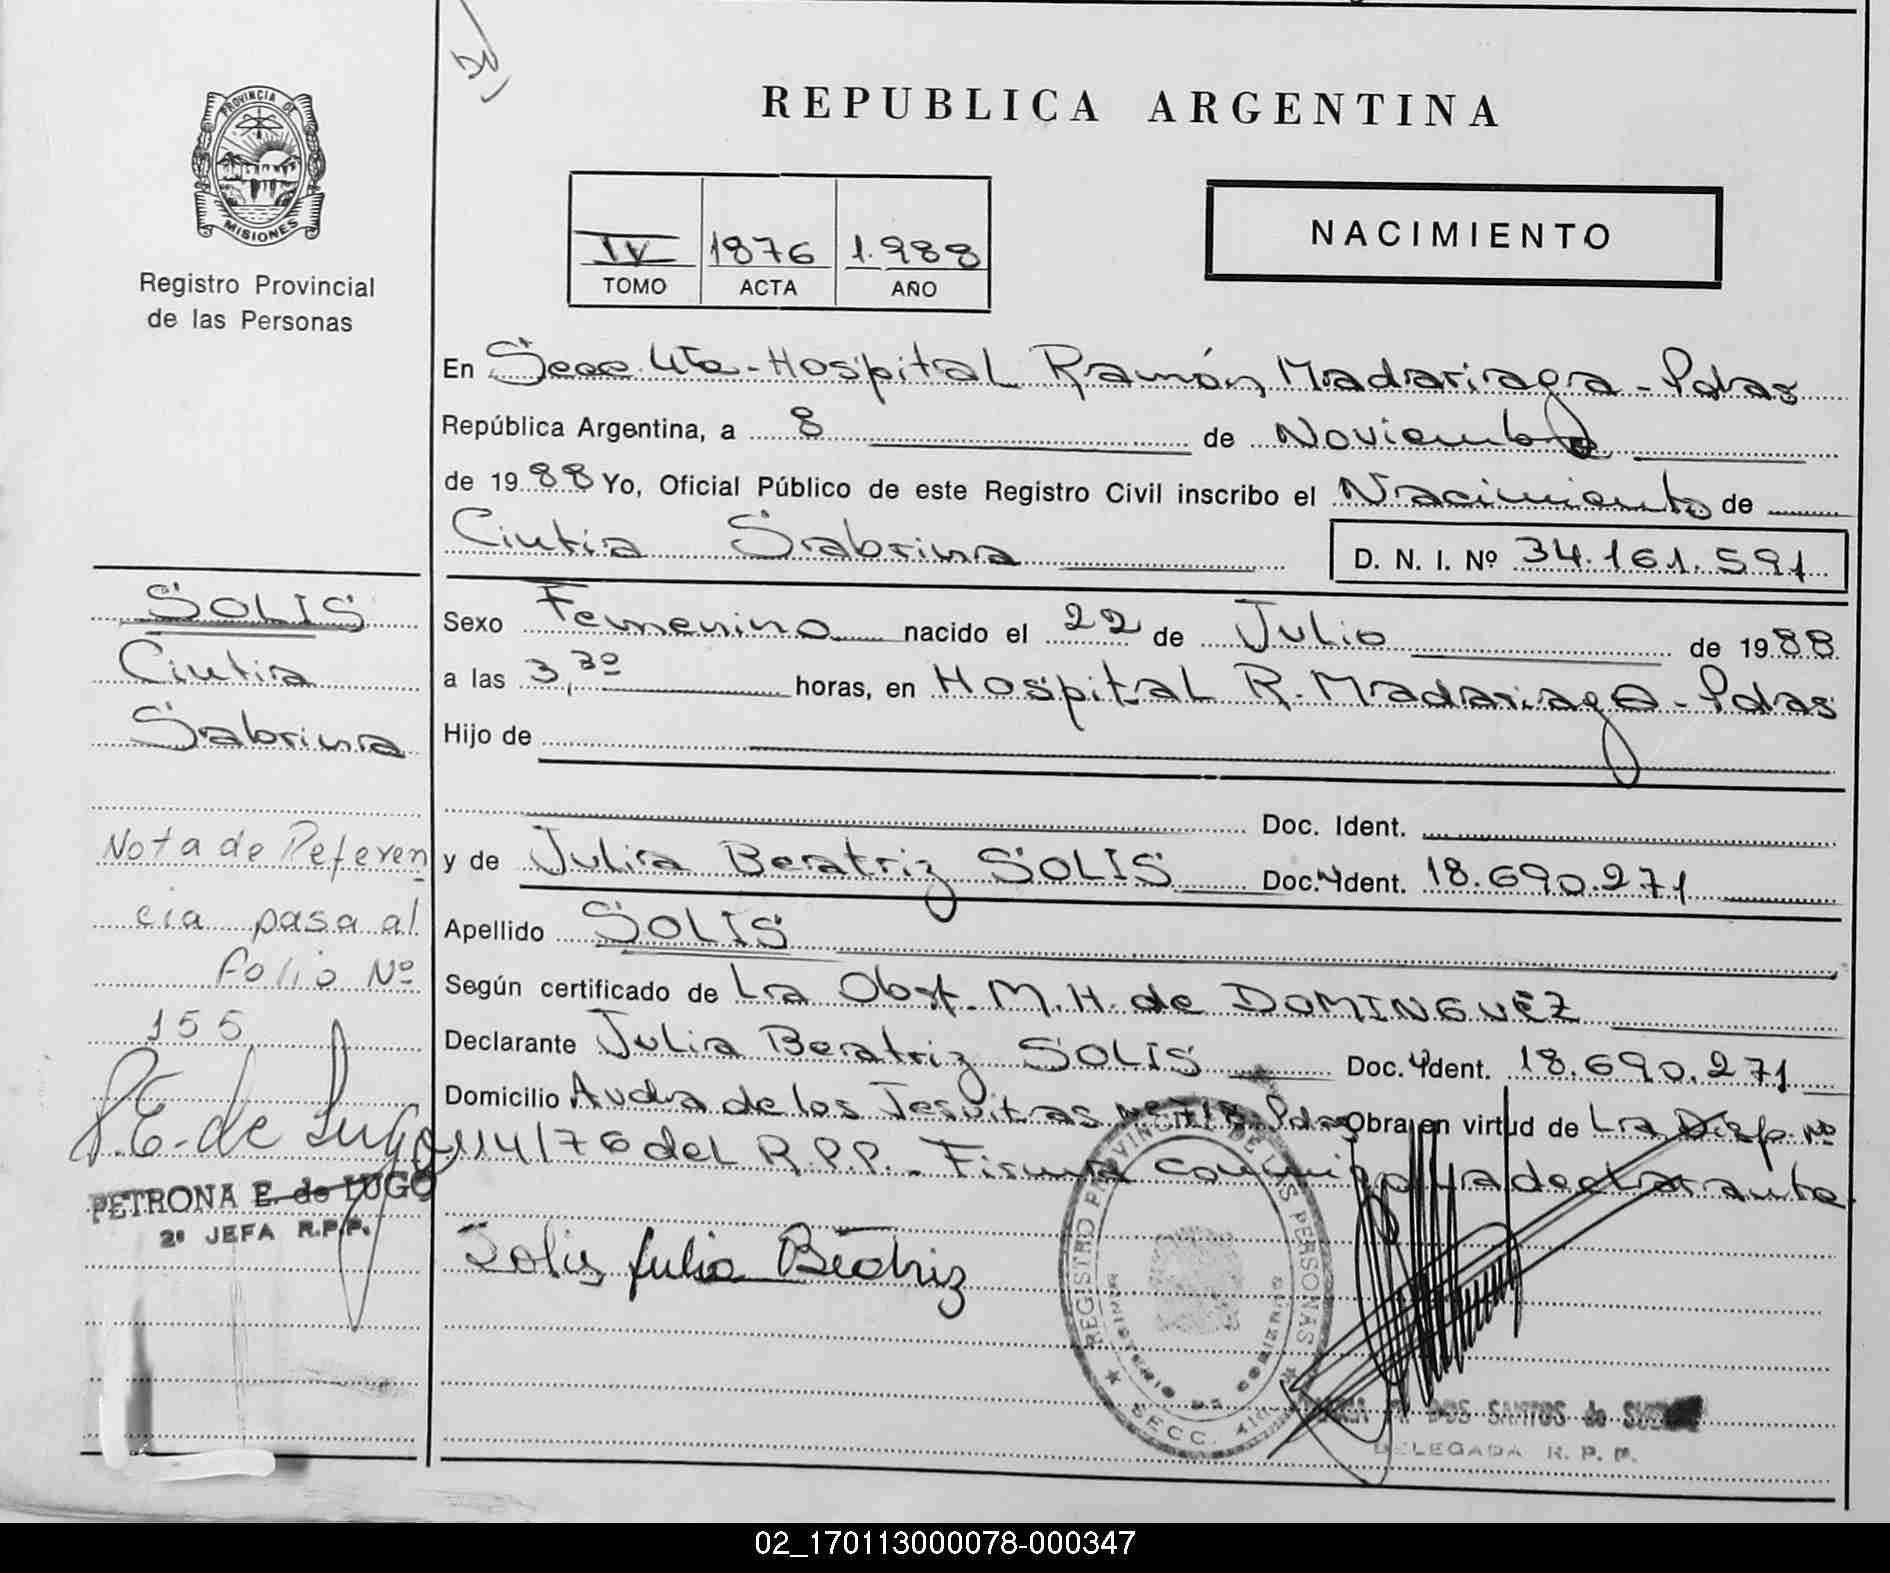 REPUBLICA ARGENTINA
PROVINCIA DE
MISIONES
Registro Provincial
de las Personas
IV 1876 1.988
TOMO ACTA AÑO
NACIMIENTO
En Secc. 4ta - Hospital Ramón Madariaga - Pdas
República Argentina, a 8 de Noviembre
de 1988 Yo, Oficial Público de este Registro Civil inscribo el Nacimiento de
Cintia Sabrina D. N. I. Nº 34.161.591
Sexo Femenino nacido el 22 de Julio de 1988
a las 3,30 horas, en Hospital R. Madariaga - Pdas
Hijo de
Doc. Ident.
y de Julia Beatriz SOLIS Doc. Ident. 18.690.271
Apellido SOLIS
Según certificado de La Obst. M. H. de DOMINGUEZ
Declarante Julia Beatriz SOLIS Doc. Ident. 18.690.271
Domicilio Avda de los Jesuitas Nº 718 Pdas Obra en virtud de La Disp. Nº
114/76 del R.P.P. - Firma conmigo la declarante
Solis Julia Beatriz
SOLIS
Cintia
Sabrina
Nota de Referen
cia pasa al
folio Nº
155
P.E. de Lugo
PETRONA E. de LUGO
2ª JEFA R.P.P.
REGISTRO PROVINCIAL DE LAS PERSONAS
MINISTERIO DE GOBIERNO
SECC. 4ta.
DOS SANTOS de
DELEGADA R. P. P.
02_170113000078-000347